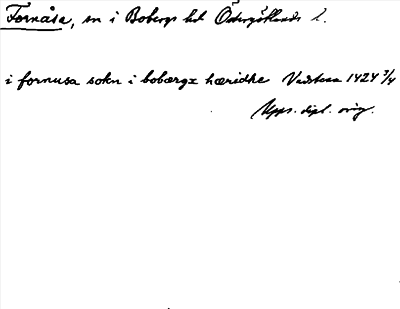 Fornåsa, sn i Bobergs hd Östergötlands l.
i fornusa sokn i bobærgx hæridhe Vadstena 1424 7/4
Upps. dipl. orig.